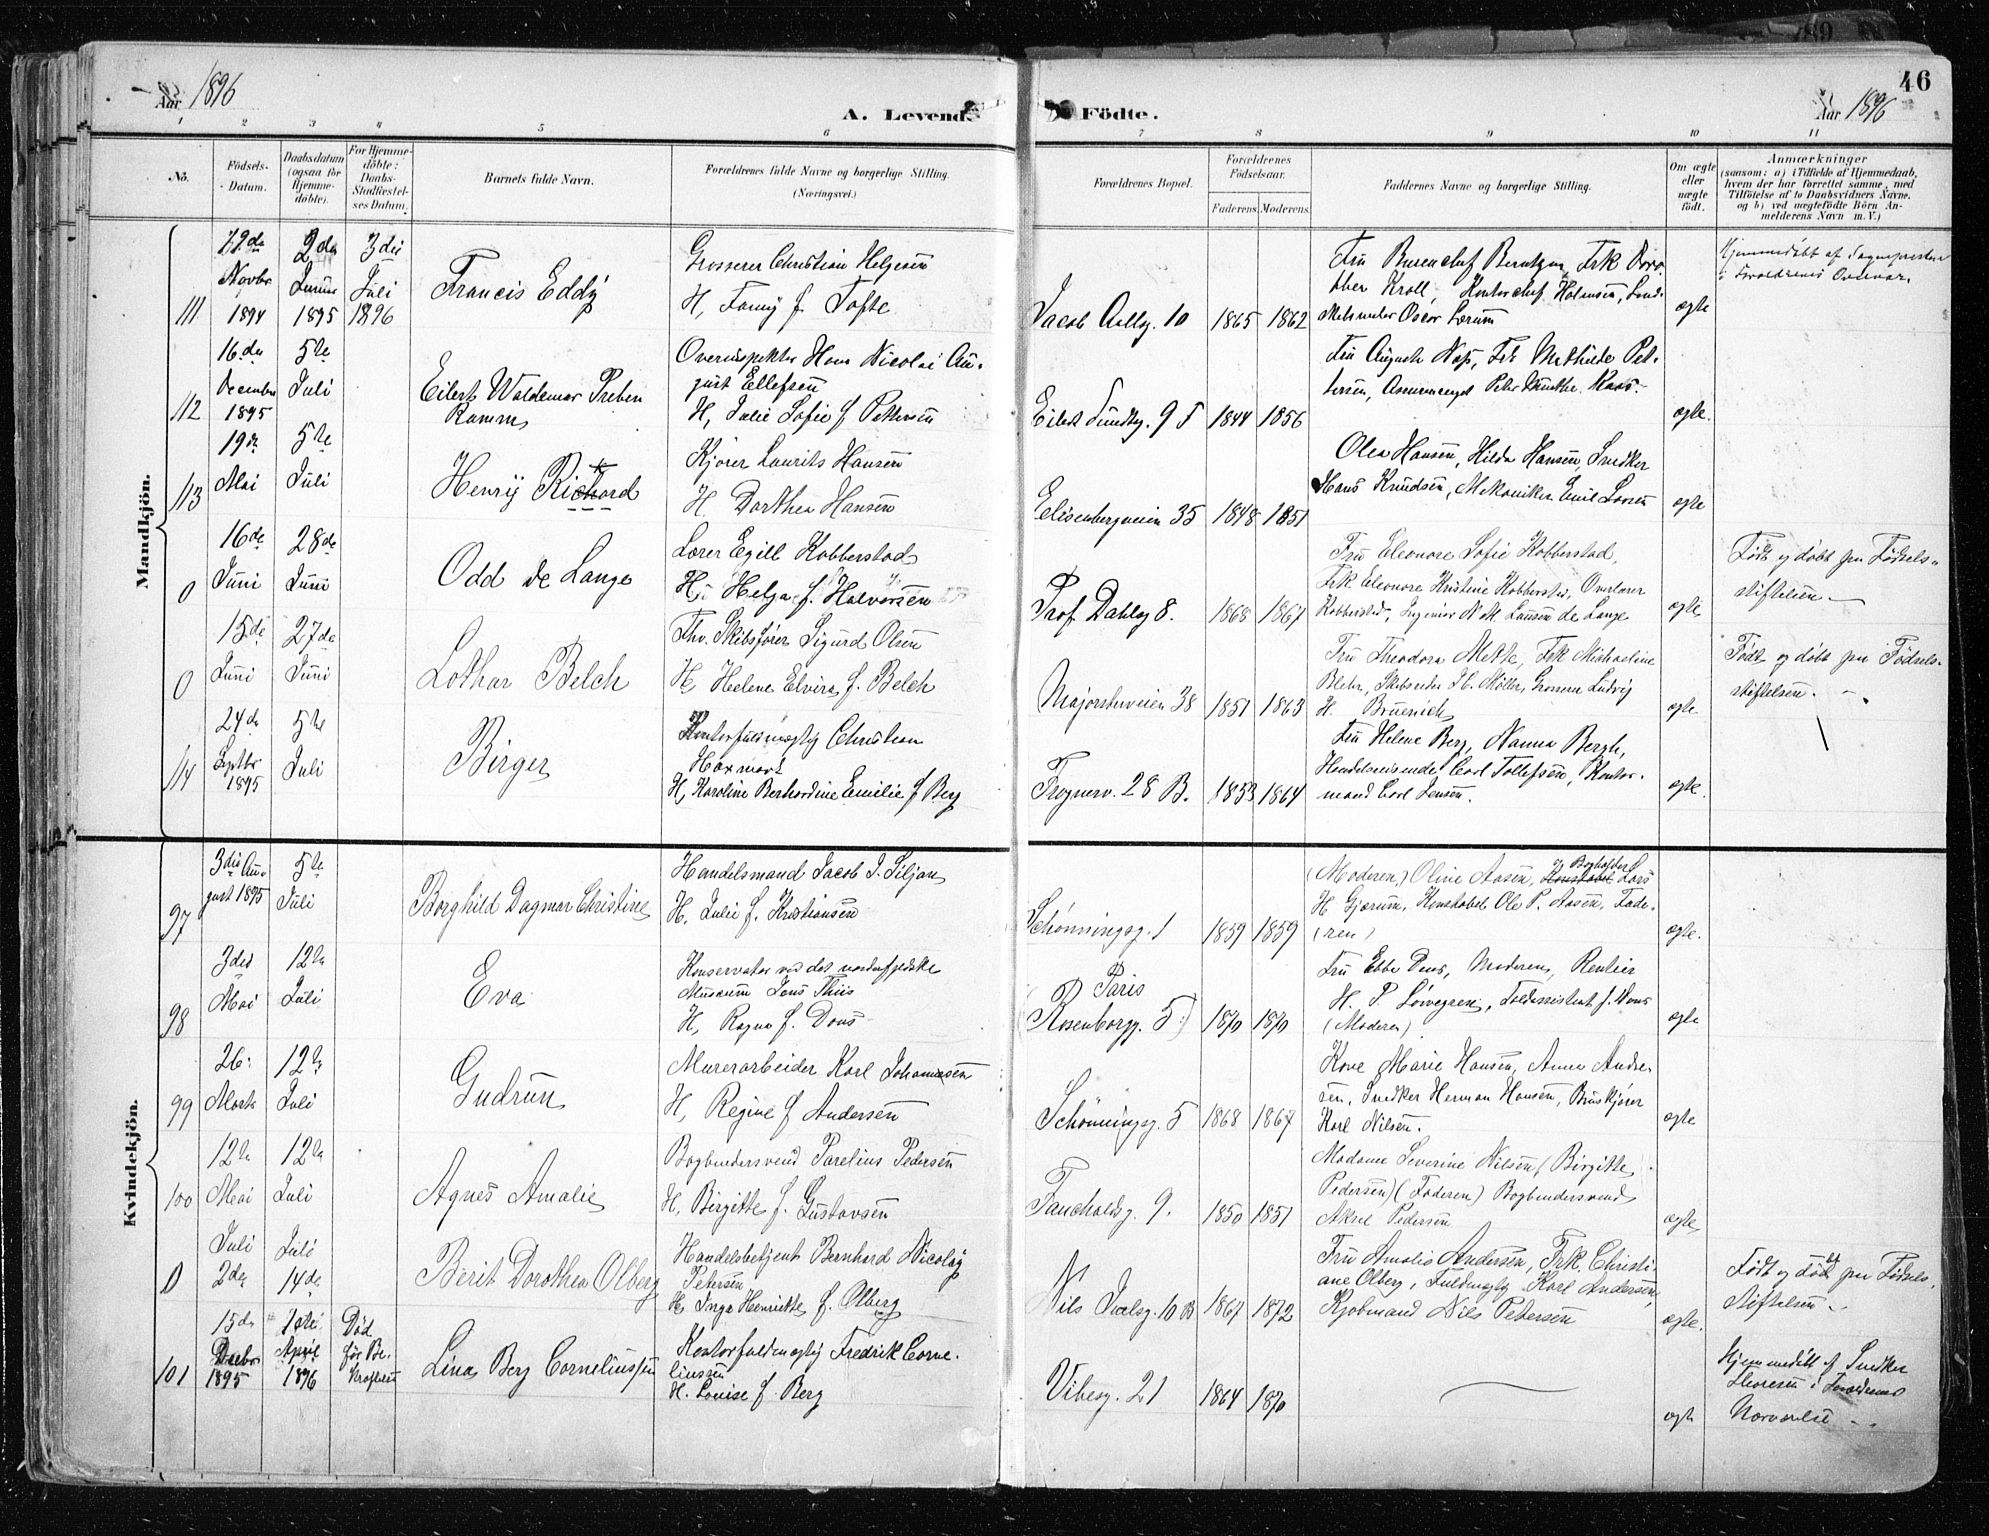 Aar 1896
A. Levende
Födte.
46
Aar 1896
1 2 3 4 5 6 7 8 9 10 11
No.
Födsels-
Datum.
Daabsdatum
(ogsaa for
Hjemme-
döbte).
For Hjemme-
döbte:
Daabs-
Stadfæstel-
ses Datum.
Barnets fulde Navn.
Forældrenes fulde Navne og borgerlige Stilling.
(Næringsvei.)
Forældrenes Bopæl.
Forældrenes
Födselsaar.
Faderens.
Moderens.
Faddernes Navne og borgerlige Stilling.
Om ægte
eller
uægte
født.
Anmærkninger
(saasom: a) i Tilfælde af Hjemmedaab,
hvem der har forrettet samme, med
Tilföielse af to Daabsvidners Navne.
og b) ved uægtefödte Börn An-
melderens Navn m. V.)
Mandkjön.
111
22de
Novbr
1894
2den
1895
3die
Juli
1896
Francis Eddy
Grosserer Christian Helgesen
H, Fanny f. Tofte
Jacob Aallsg. 10
1865
1862
Fru Bureauchef Berntzen, Frk
Kroll, Kontorchef Holmsen,
Oscar Lærum
ægte
Hjemmedøbt af Sognepresten
i Forældrenes Overvær.
112
16de
December
1895
5te
Juli
Eilert Waldemar Preben
Ramm
Overinspektør Hans Nicolai Au-
gust Ellefsen
H, Julie Sofie f Pettersen
Eilert Sundtsg. 9
1844
1856
Fru Augusta Frk Mathilde Pet-
tersen,
ægte.
113
19de
Mai
5te
Juli
Henry Richard
Kjører Laurits Hansen
H. Dorthea Hansen
Eilisenbergveien 35
1848
1851
Olea Hansen, Hilda Hansen, Snedker
Hans Knudsen, Mekaniker Emil Larsen
ægte
0
16de
Juni
28de
Juni
Odd de Lange
Lærer Egill Kobberstad
H, Helga f. Halvorsen
Prof. Dahlsg 8.
1868
1867
Fru Eleonore Sofie Kobberstad,
Frk Eleonore Kristine Kobberstad, Overlærer
Kobberstad, Ingeniør de Lange
ægte
Født og døbt paa Fødsels-
stiftelsen.
0
15de
Juni
27de
Juni
Lothar Belch
Fhv. Skibsfører Sigurd Olsen
H, Helene Elvira f. Belch
Majorstuveien 38
1851
1863
Fru Theodora Frk Michaeline
Blehr, Skibsreder Møller, Grosserer Ludvig
H. Bruenich
ægte
Født og døbt paa Fødsels-
stiftelsen.
114
24de
Septbr
1895
5te
Juli
Birger
Kontorfuldmægtig Christian
H, Karoline Bernhardine Emilie f Berg
Frognerv. 28 B.
1853
1864
Fru Helene Berg, Nanna Bergh,
Handelsreisende Carl Tollefsen, Kontor-
mand Carl Jensen.
ægte.
Kvindekjön.
97
3die Au-
gust 1895
5te
Juli
Borghild Dagmar Christine
Handelsmand Jacob J. Siljan
H. Julie f. Kristiansen
Schønningsg. 1
1859
1859
(Moderen) Oline Aasen, Bogholder Lars
H Gjærum, Konstabel Ole P. Aasen, Fade-
(ren)
ægte.
98
3die
Mai
12te
Juli
Eva
Konservator ved det nordenfjeldske
Museum Jens Thiis
H, Ragna f. Dons
Paris
(Rosenborgg. 5)
1870
1870
Fru Ebba Dons, Moderen, Rentier
H. P. Løvegren, Toldassistent f. Dons
(Moderen)
ægte
99
26.
Marts
12te
Juli
Gudrun
Murerarbeider Karl Johannesen
H, Regine f Andersen
Schønningsg. 5
1868
1867
Kone Marie Hansen, Anna Andre-
sen, Snedker Herman Hansen, Bruskjører
Karl Nilsen.
ægte
100
12te
Mai
12te
Juli
Agnes Amalie
Bogbindersvend Parelius Pedersen
H. Birgitte f. Gustavsen
Fauchaldsg. 9.
1850
1851
Madame Severine Nilsen, (Birgitte
Pedersen) (Faderen) Bogbindersvend
Aksel Pedersen
ægte
0
Juli
2den
Juli
14de
Berit Dorothea Olberg
Handelsbetjent Bernhard Nicolay
Petersen
H, Inga Henriette f. Olberg
Nils Juelsg. 10 B
1867
1872
Fru Amalie Andersen, Frk. Christi-
ane Olberg, Fuldmægtig Karl Andersen,
Kjøbmand Nils Petersen
ægte.
Født og døbt paa Fødsels-
stiftelsen.
101
15de
Decbr
1895
April
1896
Død
før Be-
kræftelsen
Lina Berg Corneliussen
Kontorfuldmægtig Fredrik Corne-
liussen
H. Louise f Berg
Vibesg. 21
1864
1870
ægte
Hjemmedøbt af Snedker
Thoresen i Forældrenes
Nærværelse